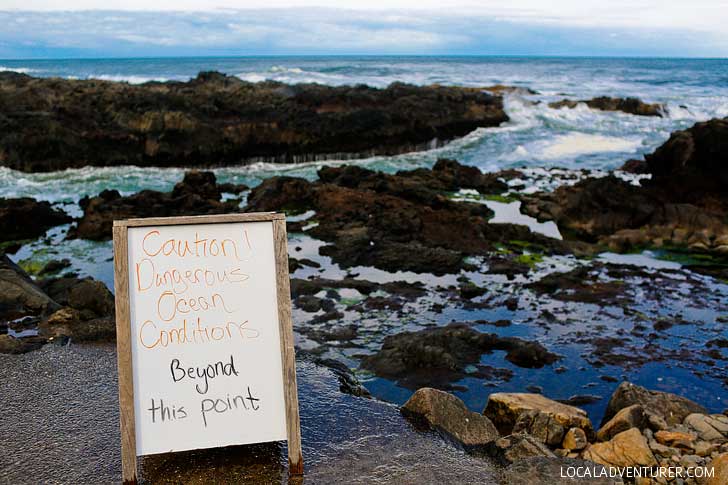 Caution!
Dangerous
Ocean
Conditions
Beyond
this point
LOCALADVENTURER.COM